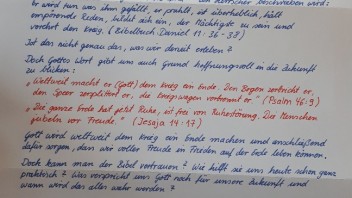 er wird tun was ihm gefällt, er prahlt, ist überheblich, hält
empörende Reden, bildet sich ein, der Mächtigste zu sein und
verehrt den Krieg. (Bibelbuch Daniel 11:36-38)
Ist das nicht genau das, was wir derzeit erleben?
Doch Gottes Wort gibt uns auch Grund hoffnungsvoll in die Zukunft
zu blicken:
"Weltweit macht er (Gott) dem Krieg ein Ende. Den Bogen zerbricht er,
den Speer zersplittert er, die Kriegswagen verbrennt er." (Psalm 46:9)
"Die ganze Erde hat jetzt Ruhe, ist frei von Ruhestörung. Die Menschen
jubeln vor Freude." (Jesaja 14:7)
Gott wird weltweit dem Krieg ein Ende machen und anschließend
dafür sorgen, dass wir voller Freude in Frieden auf der Erde leben können.
Doch kann man der Bibel vertrauen? Wie hilft sie uns heute schon ganz
praktisch? Was verspricht uns Gott noch für unsere Zukunft und
wann wird das alles wahr werden?